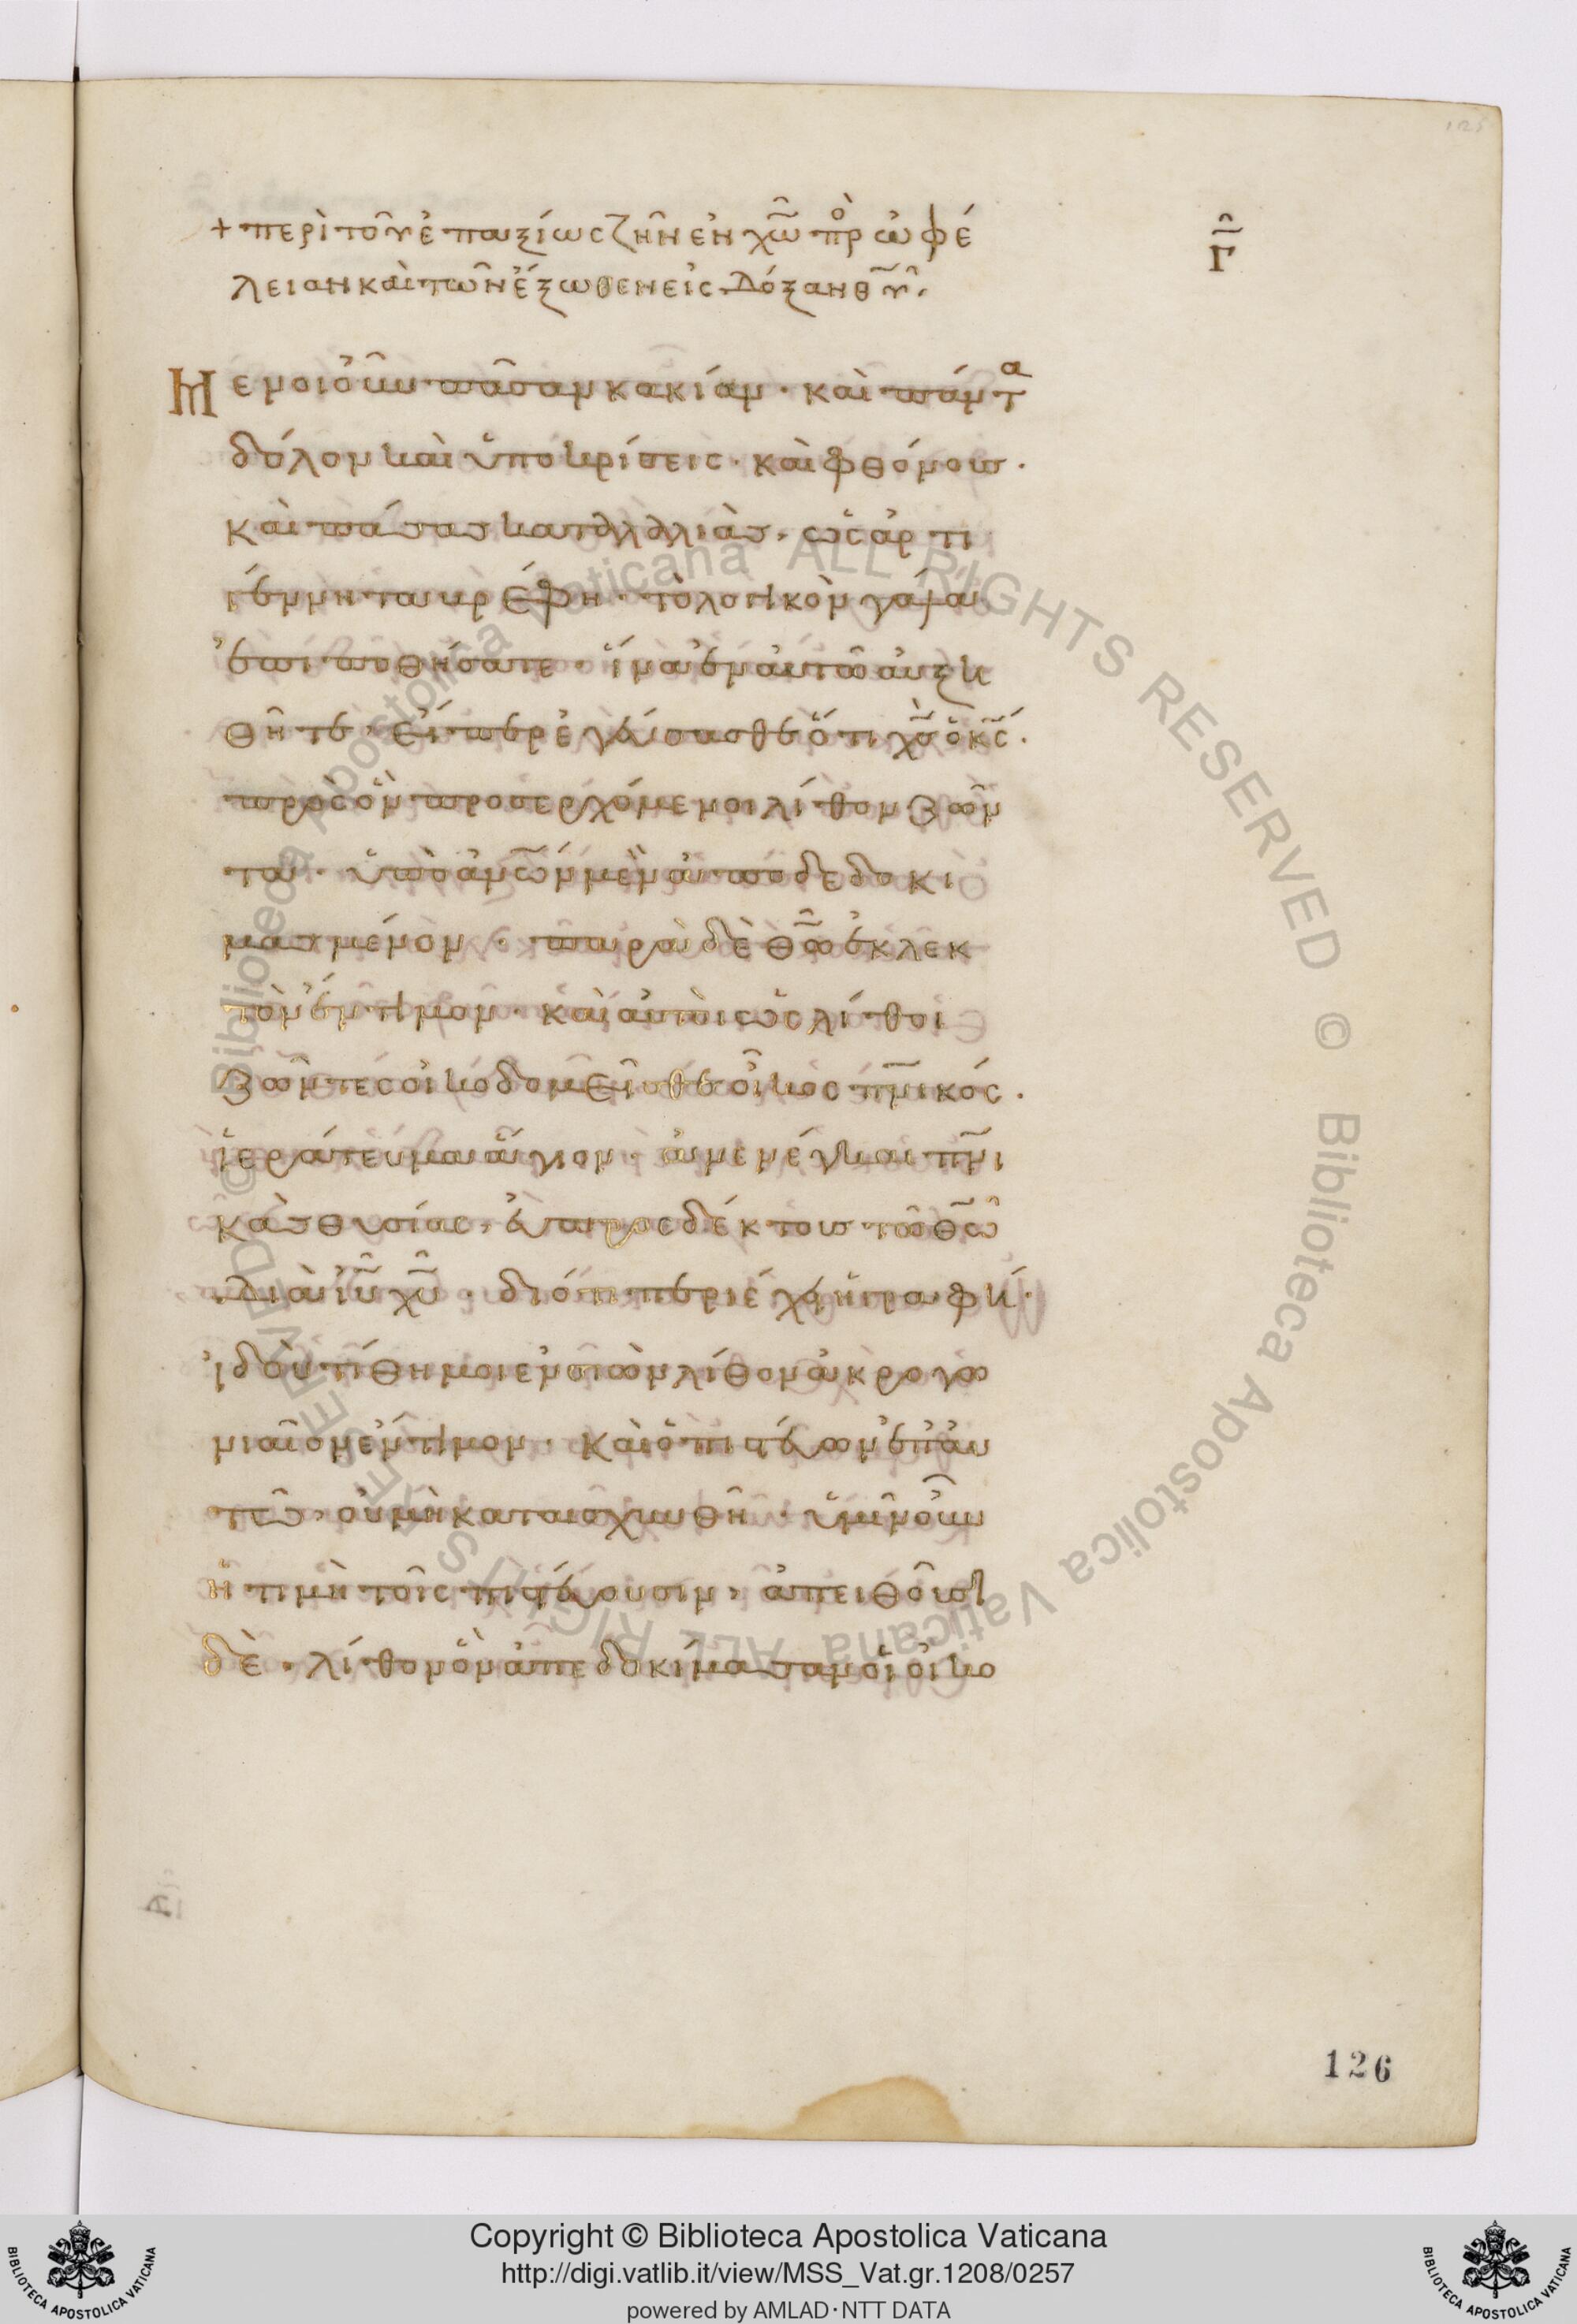 + περὶ τοῦ ἐπαξίως ζῆν ἐν χ̅ω̅ πρὸ ὠφέ
Γ̅
λειαν καὶ τῶν ἔξωθεν εἰς δόξαν θ̅υ̅.
μενοι οὖν πᾶσαν κακίαν · καὶ πάντα
δόλον καὶ ὑποκρίσεις · καὶ φθόνους ·
καὶ πάσας καταλαλιὰς, ὡς ἀρτι
γέννητα βρέφη · τὸ λογικὸν γάλα
ἐπιποθήσατε · ἵνα ἐν αὐτῶ αὐξη
θῆτε · εἴπερ ἐγεύσασθε ὅτι χ̅ς̅ ὁ κ̅ς̅ ·
πρὸς ὃν προσερχόμενοι λίθον ζῶν
τα · ὑπὸ ἀν̅ω̅ν μὲν ἀποδεδοκι
μασμένον · παρὰ δὲ θ̅ω̅ ἐκλεκ
τὸν ἔντιμον · καὶ αὐτοὶ ὡς λίθοι
ζῶντες οἰκοδομεῖσθε οἶκος π̅ν̅ικός ·
ἱεράτευμα ἅγιον · ἀνενέγκαι π̅ν̅ι
κὰς θυσίας, εὐπροσδέκτους τῶ θ̅ω̅
διὰ ι̅υ̅ χ̅υ̅ · διότι περιέχει ἡ γραφή ·
ἰδοὺ τίθημοι ἐν σιὼν λίθον ἀκρογω
νιαῖον ἔντιμον · καὶ ὁ πιστεύων ἐπ' αὐ
τῶ, οὐ μὴ καταισχυνθῆ · ὑμῖν οὖν
ἡ τιμὴ τοῖς πιστεύουσιν, ἀπειθοῦσι
δὲ · λίθον ὃν ἀπεδοκίμασαν οἱ οἰκο
126
© Biblioteca Apostolica Vaticana ALL RIGHTS RESERVED © Biblioteca Apostolica Vaticana ALL RIGHTS RESERVED
BIBLIOTECA APOSTOLICA VATICANA
Copyright © Biblioteca Apostolica Vaticana
http://digi.vatlib.it/view/MSS_Vat.gr.1208/0257
powered by AMLAD·NTT DATA
BIBLIOTECA APOSTOLICA VATICANA